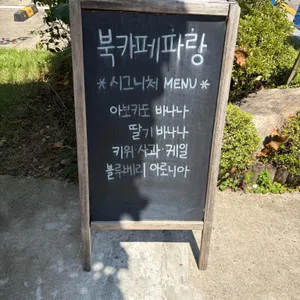 북카페파랑
*시그니처 MENU*
아보카도 바나나
딸기 바나나
키위·사과·케일
블루베리 아로니아